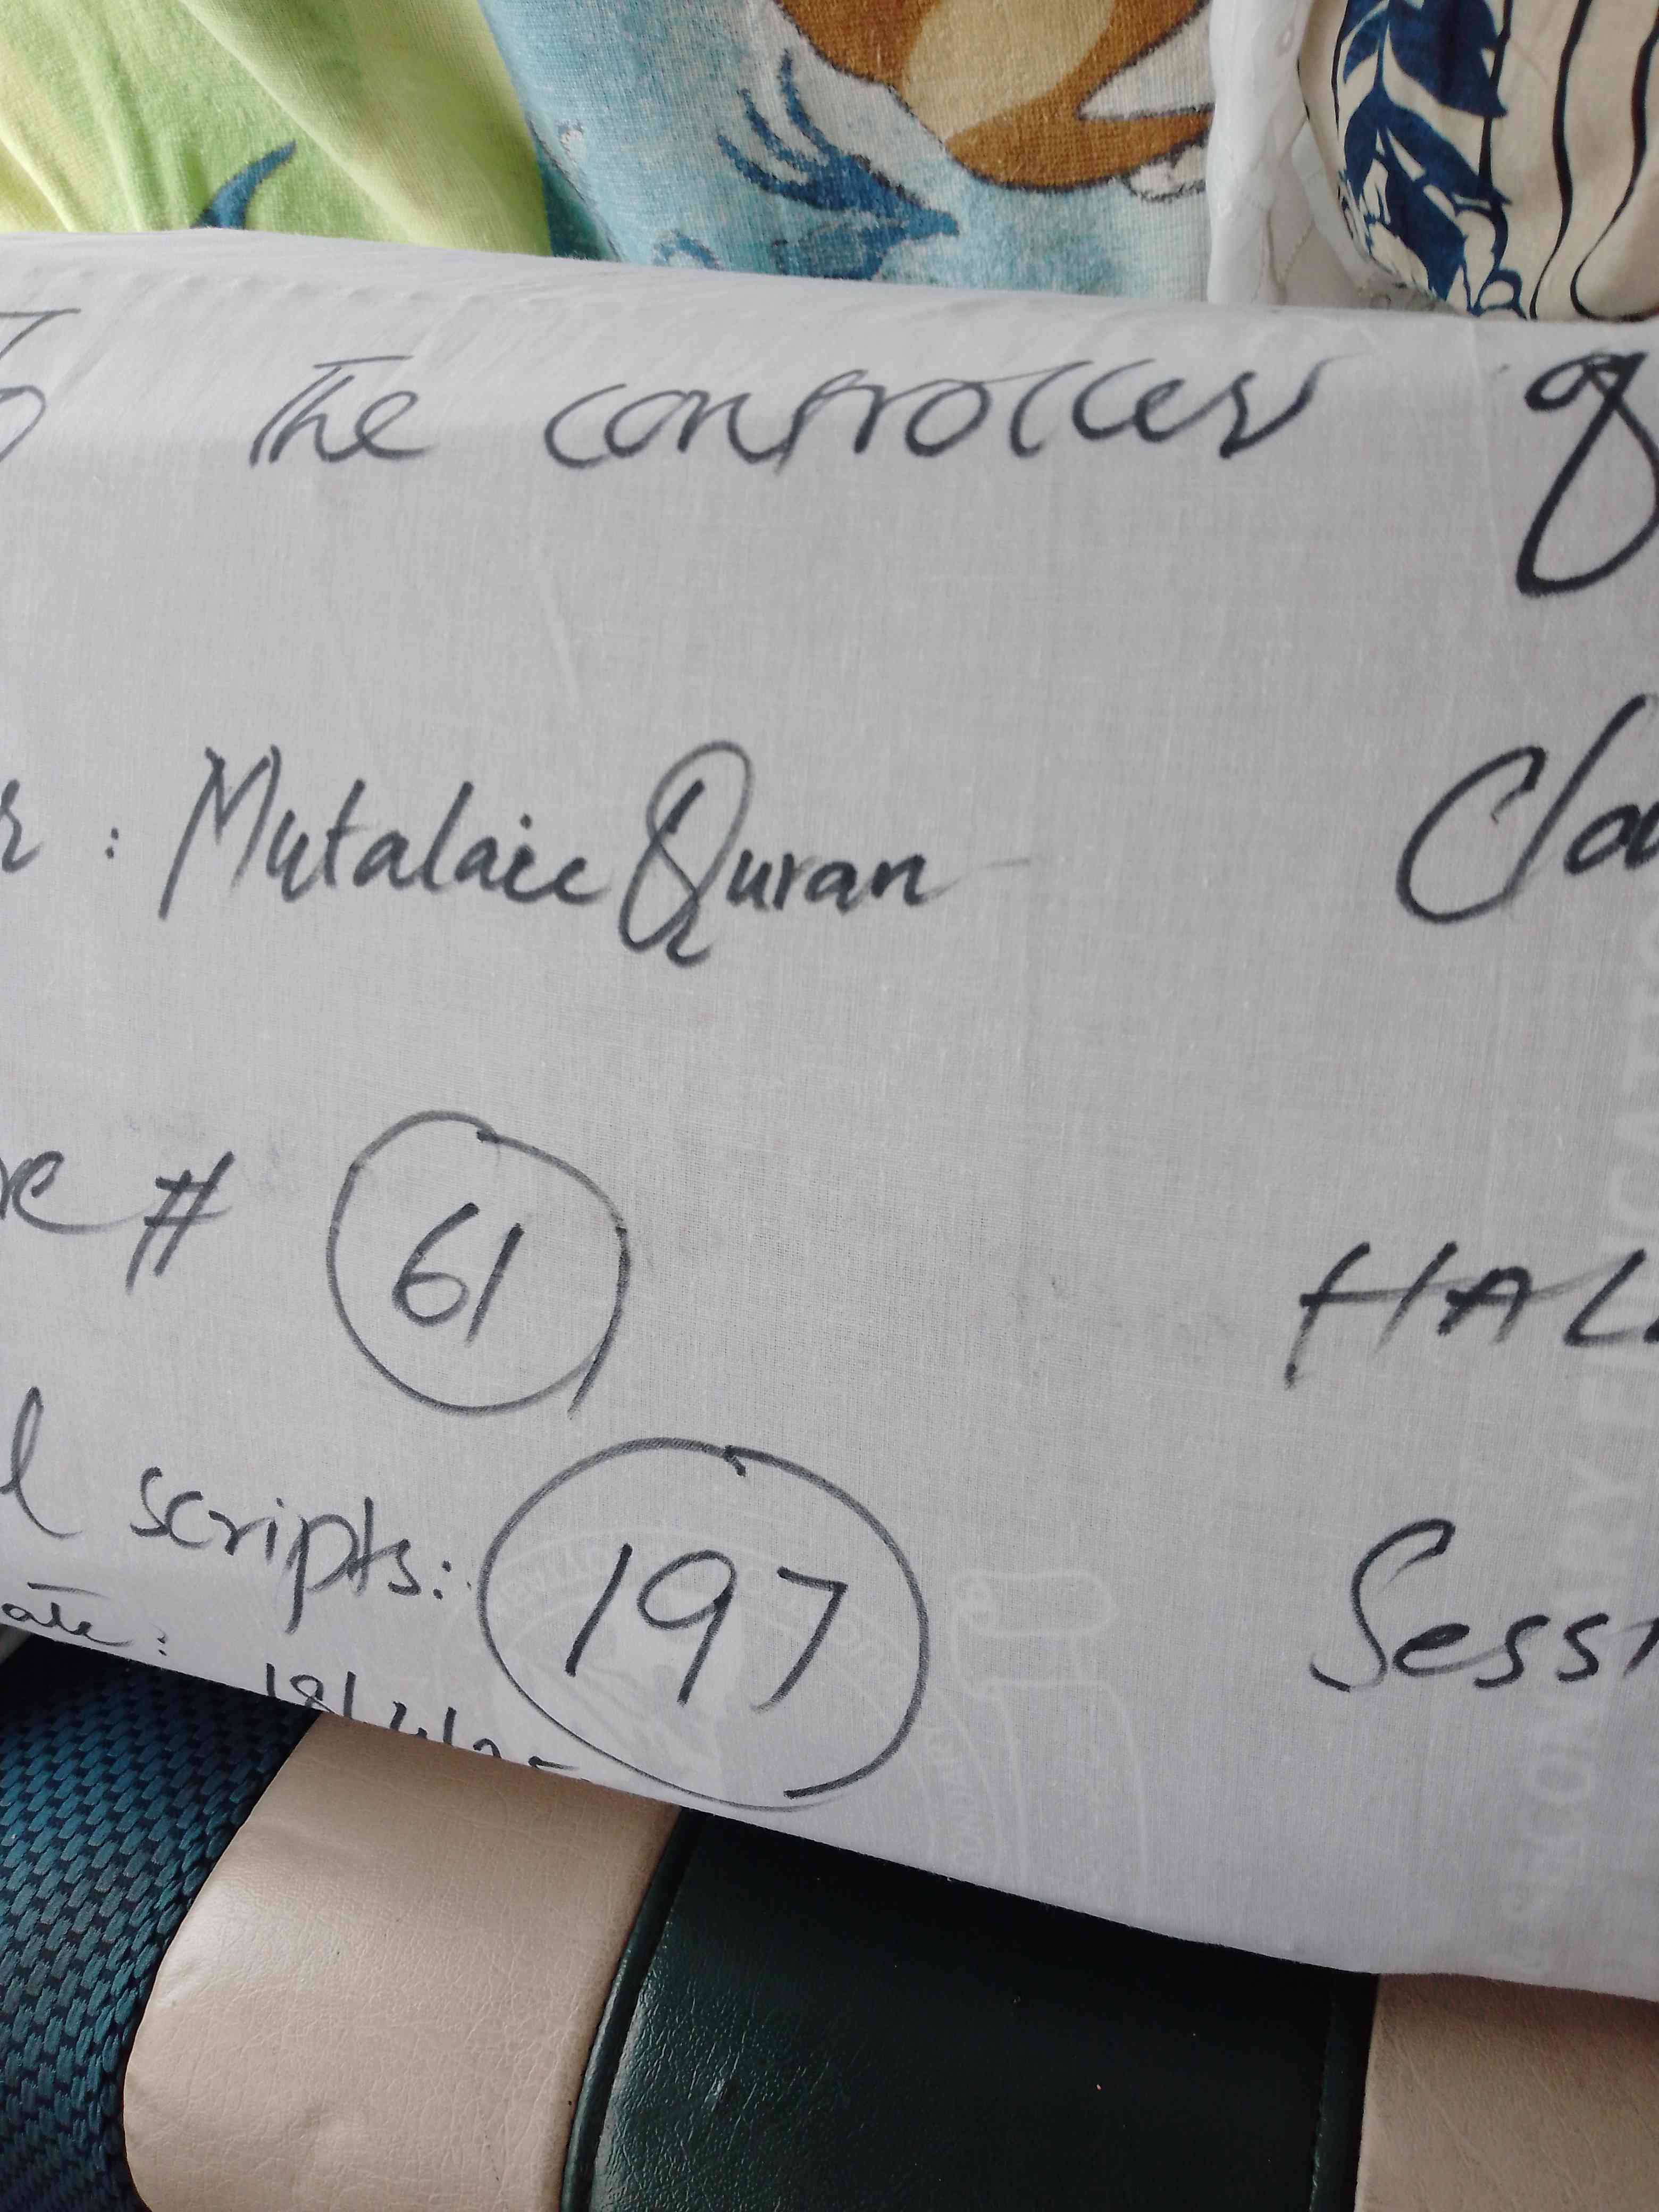 To The controller of
r : Mutalaic Quran Cla
re # 61 HAL
l scripts: 197 Sess
ate: 18/4/25